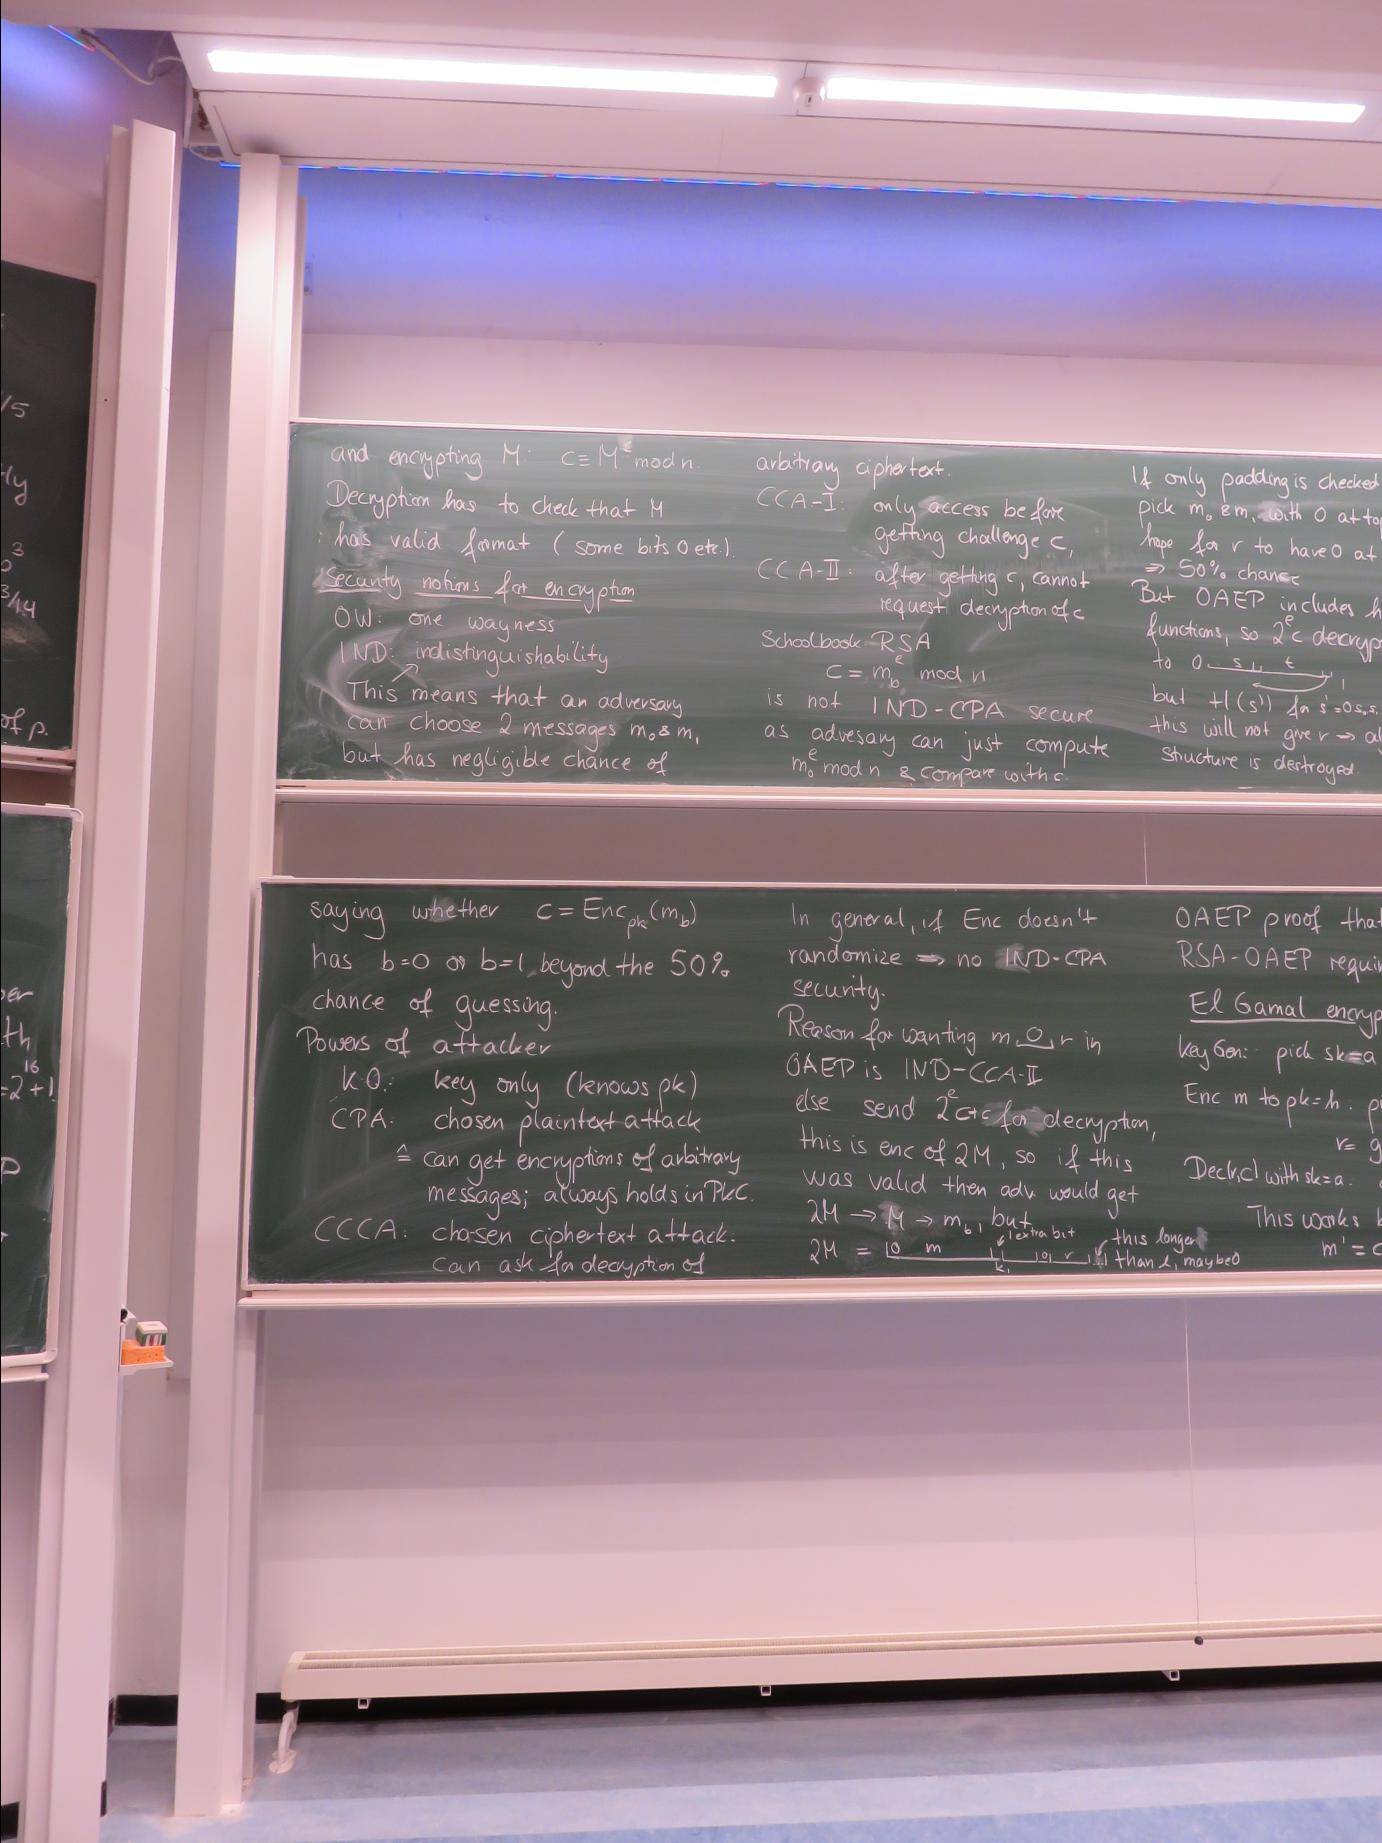 /5
ly
3
3/44
of p.
er
th
16
=2+1
P
and encrypting M: c≡M^e mod n.
Decryption has to check that M
has valid format (some bits 0 etc.).
Security notions for encryption
OW: one wayness
IND: indistinguishability
This means that an adversary
can choose 2 messages m₀ & m₁
but has negligible chance of
arbitrary ciphertext.
CCA-I: only access before
getting challenge c,
CCA-II: after getting c, cannot
request decryption of c
Schoolbook RSA
c = m_b^e mod n
is not IND-CPA secure
as advesary can just compute
m₀^e mod n & compare with c.
If only padding is checked
pick m₀ & m₁ with 0 at to
hope for r to have 0 at
⇒ 50% chance
But OAEP includes h
functions, so 2^e c decryp
to 0 s t
but H(s') for s'=0s,s,
this will not give r → al
structure is destroyed.
saying whether c = Enc_pk(m_b)
has b=0 or b=1 beyond the 50%
chance of guessing.
Powers of attacker
K.O.: key only (knows pk)
CPA: chosen plaintext attack
≙ can get encryptions of arbitrary
messages; always holds in PKC.
CCCA: chosen ciphertext attack:
can ask for decryption of
In general, if Enc doesn't
randomize ⇒ no IND-CPA
security.
Reason for wanting m 0 r in
OAEP is IND-CCA-II
else send 2^e c for decryption,
this is enc of 2M, so if this
was valid then adv. would get
2M → M → m_b, but
2M = 0 m 1 extra bit 0 r this longer
k₁ than l, maybe 0
OAEP proof that
RSA-OAEP requir
El Gamal encryp
KeyGen: pick sk=a
Enc m to pk=h. p
r= g
Dec(r,c) with sk=a.
This works b
m' = c